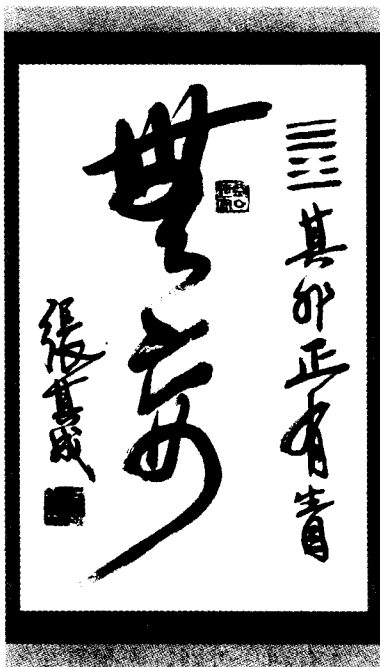 ䷘其非正有眚
無妄
張其成